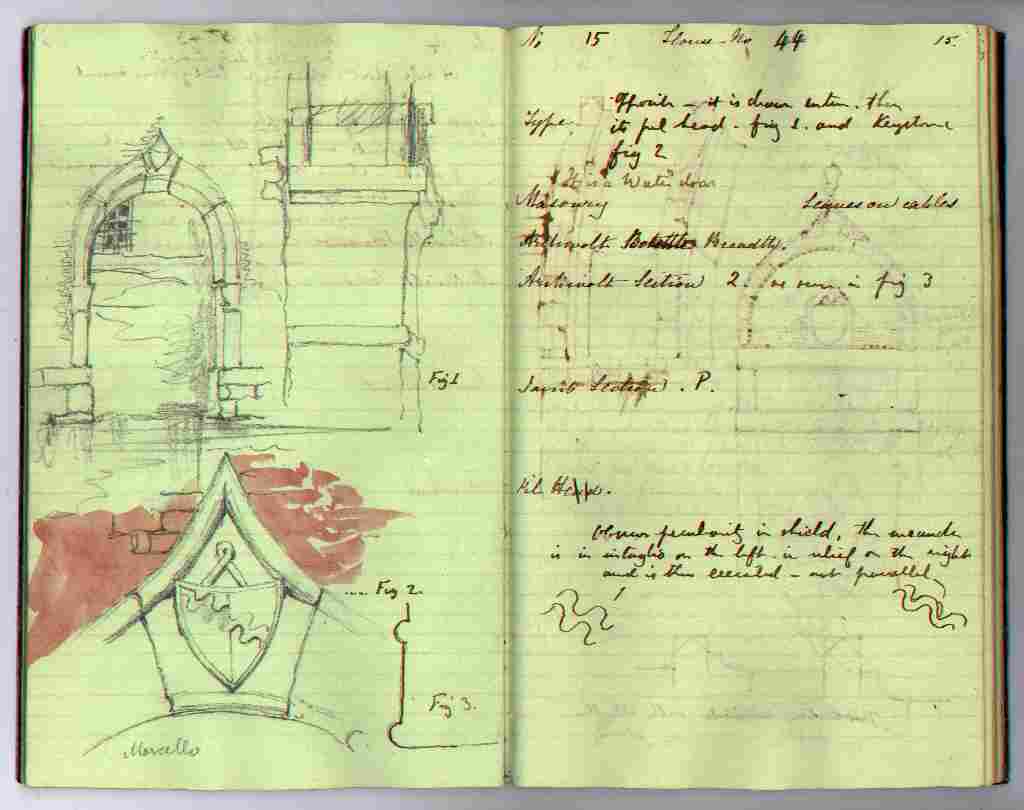 Fig 1
Fig 2.
Fig 3.
Marcello
No 15 House No 44 15.
Type. Opposite - it is drawn entire. then
its pil head. fig 1. and Keystone
fig 2
It is a Water door
Masonry Leaves on cables
Archivolt Breadth.
Archivolt Section 2. as seen in fig 3
Jamb Section. P.
Pil Head.
Observe peculiarity in shield, the meander
is in intaglio on the left. in relief on the right
and is thus executed - not parallel